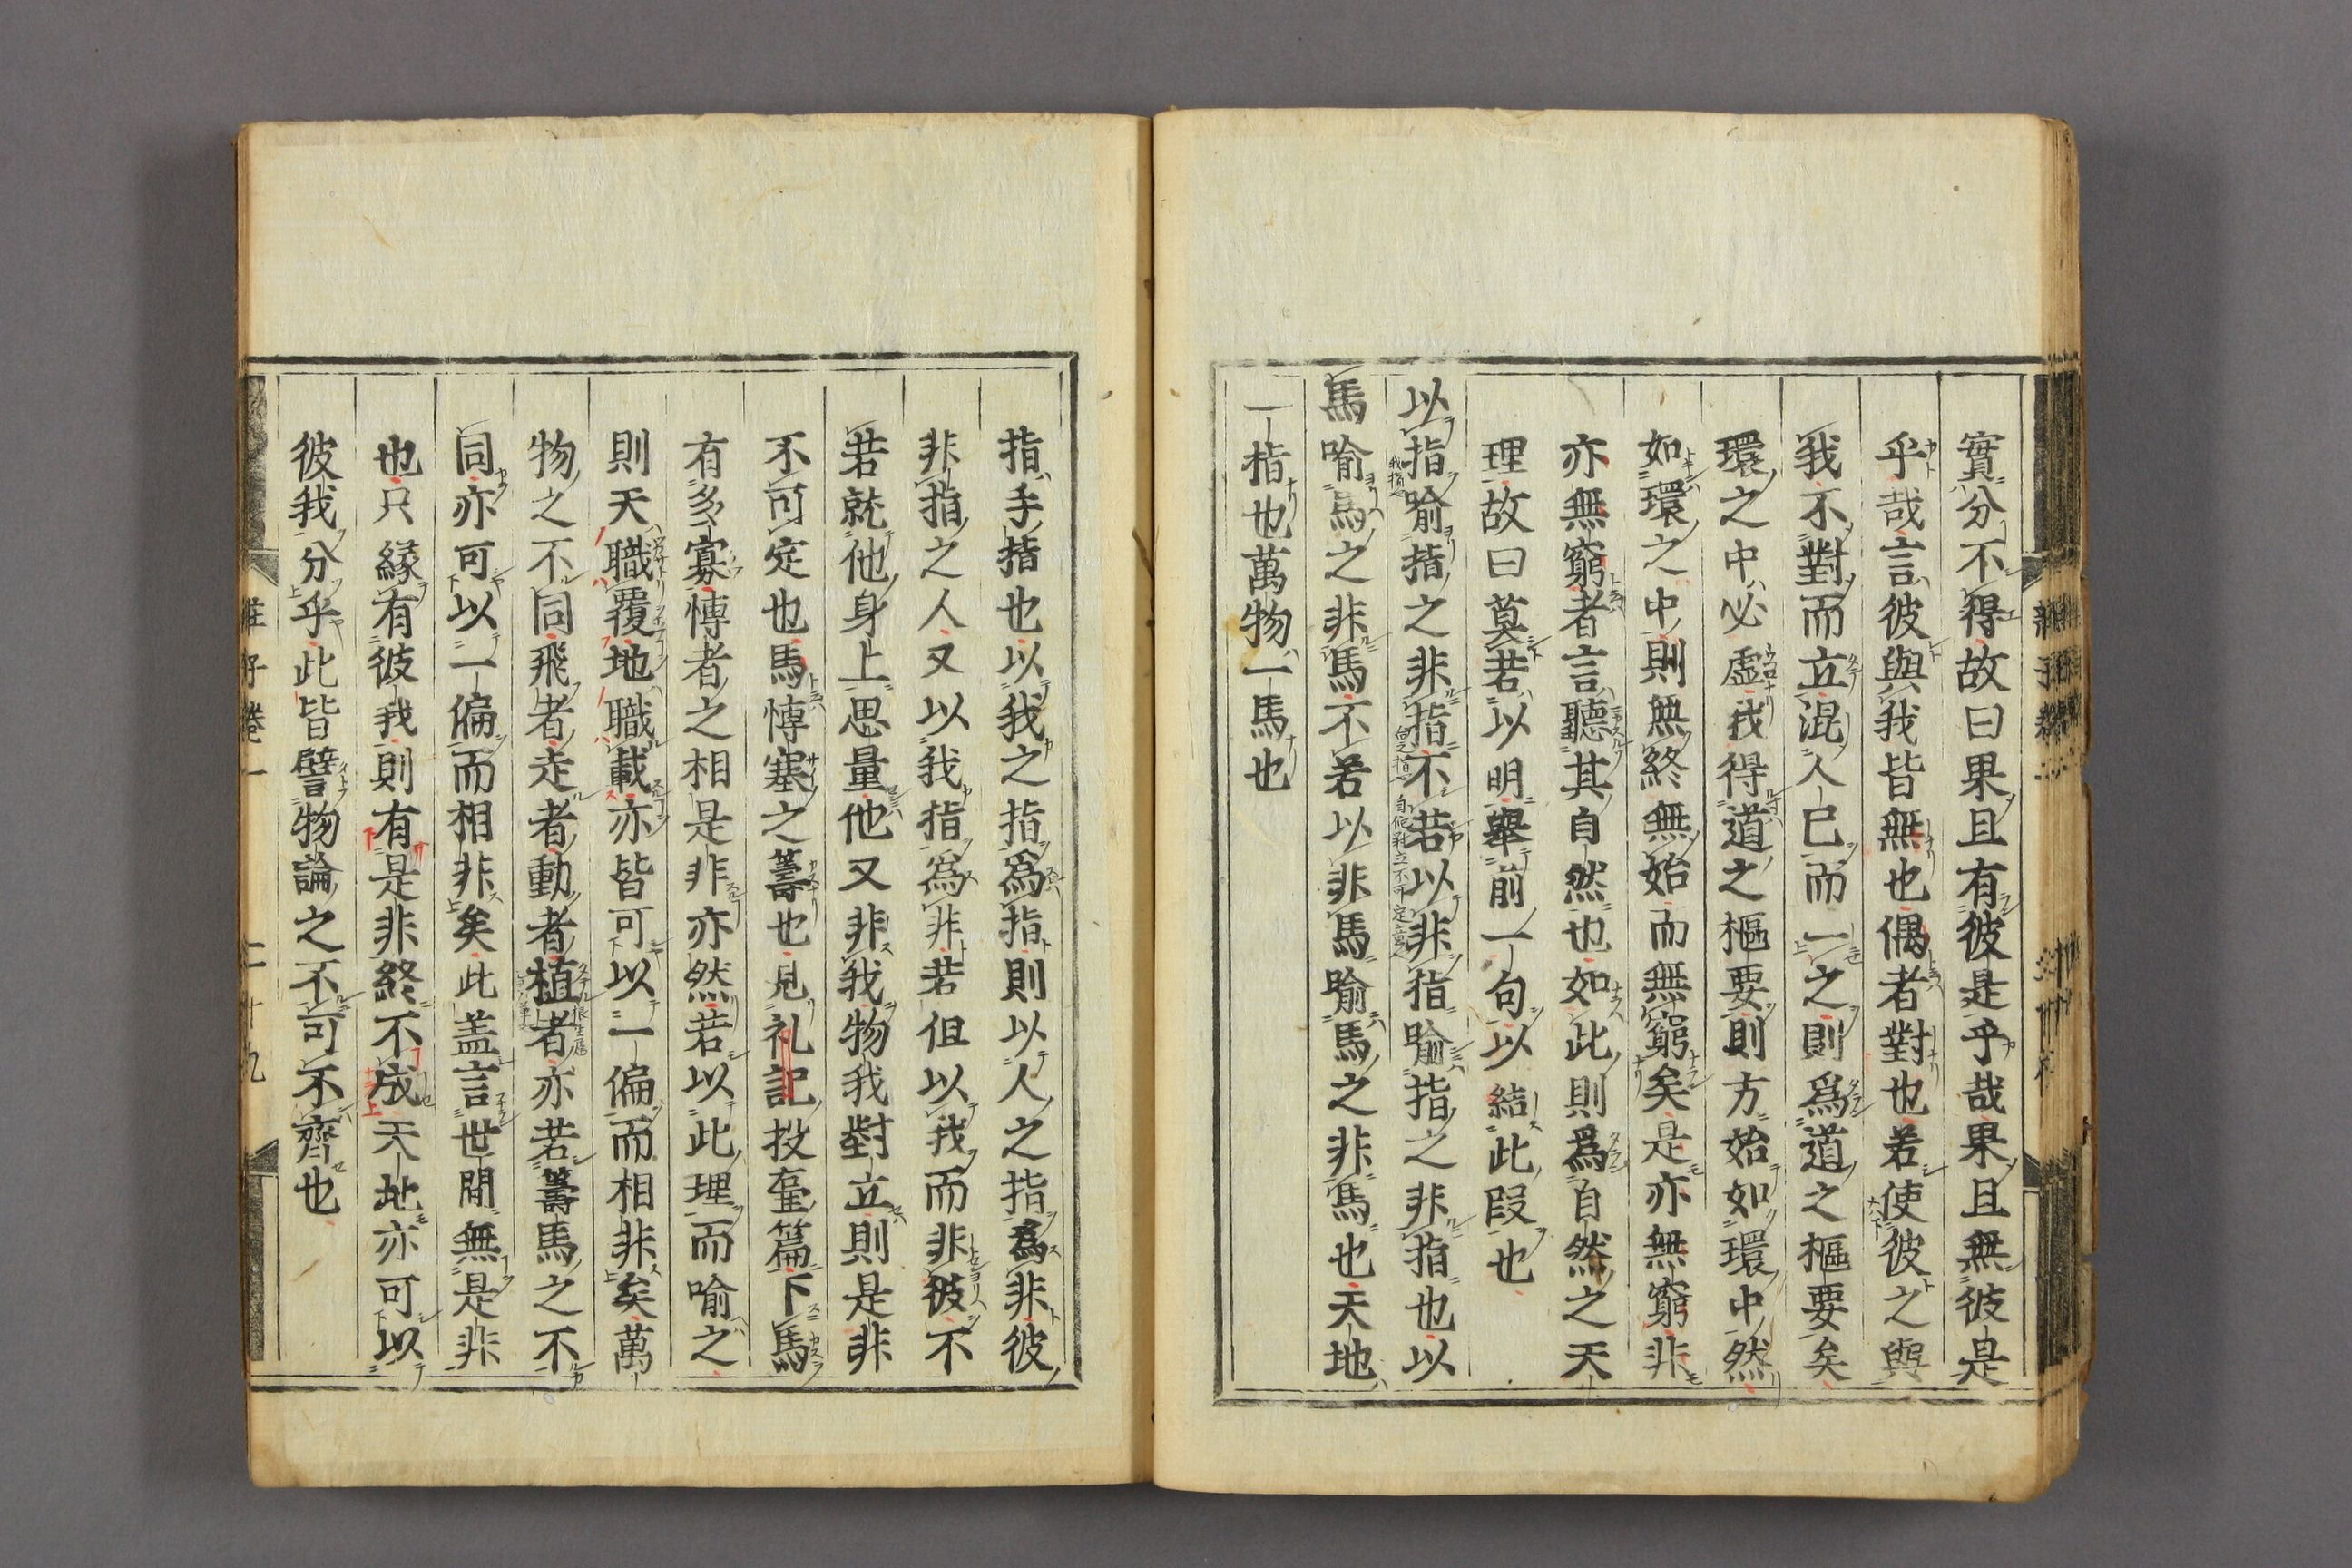 實分不得故曰果且有彼是乎哉果且無彼是
乎哉言彼與我皆無也偶者對也若使彼之與
我不對而立混人己而一之則爲道之樞要矣
環之中必虛我得道之樞要則方始如環中然
如環之中則無終無始而無窮矣是亦無窮非
亦無窮者言聽其自然也如此則爲自然之天
理故曰莫若以明舉前一句以結此段也
以指喻指之非指不若以非指喻指之非指也以
馬喻馬之非馬不若以非馬喻馬之非馬也天地
一指也萬物一馬也
指手指也以我之指爲指則以人之指爲非彼
非指之人又以我指爲非若但以我而非彼不
若就他身上思量他又非我物我對立則是非
不可定也馬博塞之籌也見礼記投壺篇下馬
有多寡博者之相是非亦然若以此理而喻之
則天職覆地職載亦皆可以一偏而相非矣萬
物之不同飛者走者動者植者亦若籌馬之不
同亦可以一偏而相非矣此盖言世間無是非
也只緣有彼我則有是非終不成天地亦可以
彼我分乎此皆譬物論之不可不齊也
莊子卷一
二十九